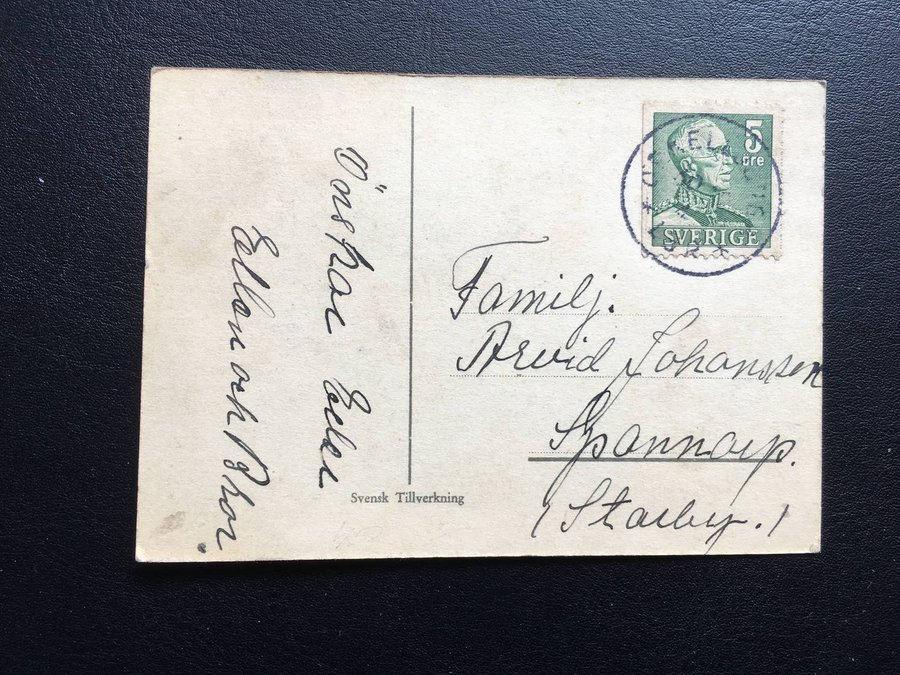 Önskar Eder
Ellen och Thor
5
öre
SVERIGE
Familj.
Arvid Johanssen
Spannarp.
(Starby.)
Svensk Tillverkning